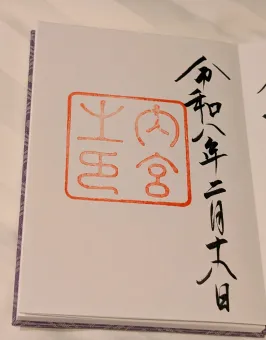 令和八年二月十八日
内宮
之印